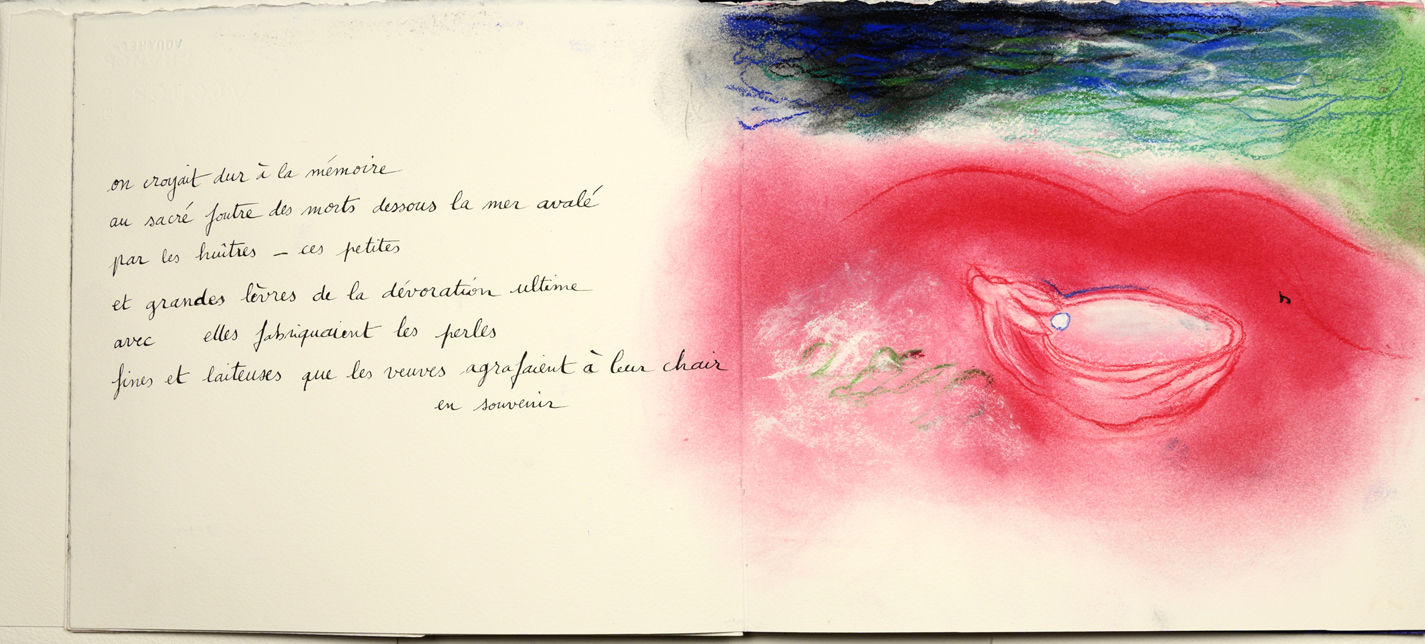 on croyait dur à la mémoire
au sacré foutre des morts dessous la mer avalé
par les huîtres – ces petites
et grandes lèvres de la dévoration ultime
avec elles fabriquaient les perles
fines et laiteuses que les veuves agrafaient à leur chair
en souvenir